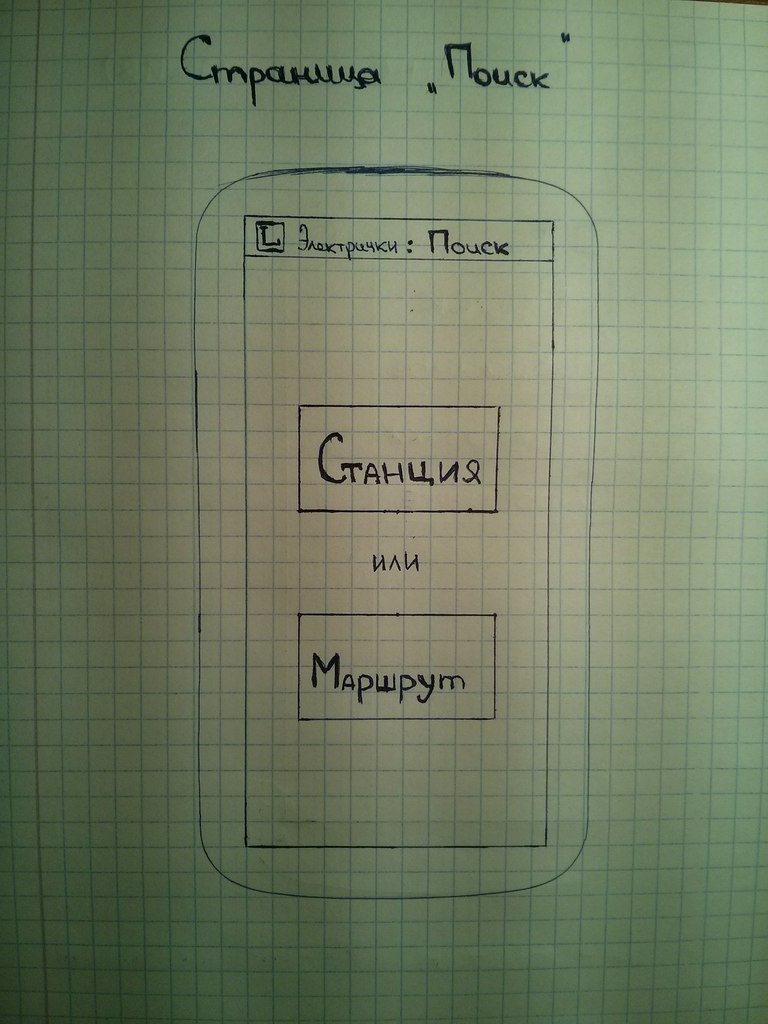 Страница „Поиск"
L Электрички: Поиск
Станция
или
Маршрут